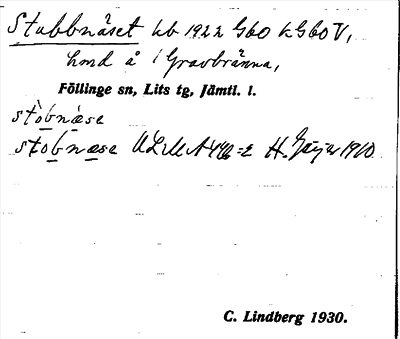 Stubbnäset hb 1922 G60 k G60 V,
hmd å i Gravbränna,
Föllinge sn, Lits tg, Jämtl. l.
stòbnæ̀se
stòbnæse ULMA 44:2 H. Geijer 1910.
C. Lindberg 1930.